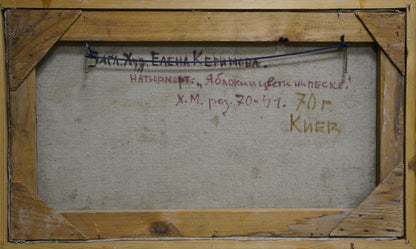 Засл. Худ. Елена Керимова.
натюрморт: „Яблоки и цветы на песке."
х.м. раз. 70×41. 70 г.
Киев